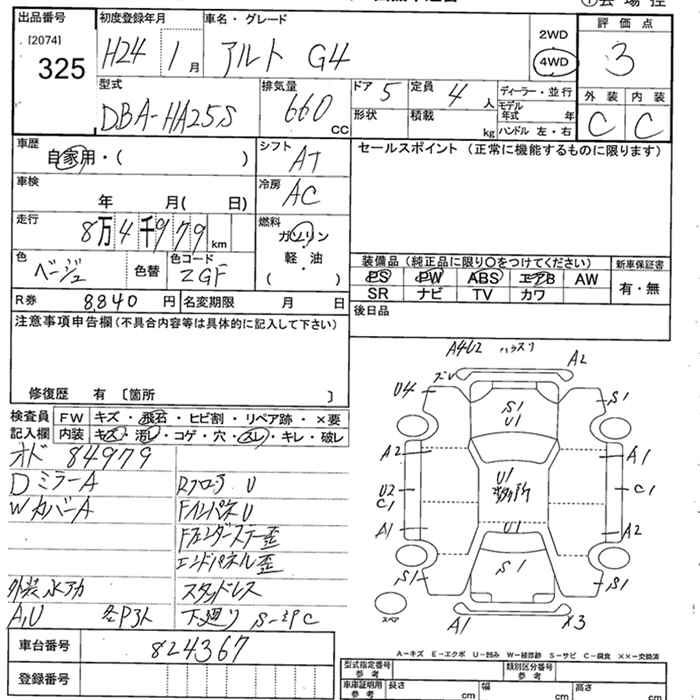 出品番号 初度登録年月 車名・グレード 評価点
[2074] 325 H24 1月 アルト G4 2WD 4WD 3
外装 内装
C C
型式 排気量 ドア 5 定員 4人 ディーラー・並行
DBA-HA25S 660 CC 形状 積載 kg モデル年式 年
ハンドル 左・右
車歴 自家用・( ) シフト AT セールスポイント(正常に機能するものに限ります)
車検 年 月( 日) 冷房 AC
走行 8万4千979km 燃料 ガソリン
軽・油
( )
色 ベージュ 色替 色コード ZGF
装備品(純正品に限り○をつけてください) 新車保証書
PS PW ABS エアB AW 有・無
SR ナビ TV カワ
R券 8,840円 名変期限 月 日 後日品
注意事項申告欄(不具合内容等は具体的に記入して下さい)
修復歴 有 〔箇所 〕
検査員記入欄 FW キズ・飛石・ヒビ割・リペア跡・×要
内装 キズ・汚レ・コゲ・穴・スレ・キレ・破レ
オド 84979
DミラーA Rフロア U
WカバーA FインパネU
Fフェンダーステー歪
エンドパネル歪
外装水アカ スタンドレス
A,U 下廻り S-
A4U2 A2
U4 S1 U1 S1
A2 A1
U2 C1 U1 C1
A1 U1 A2
S1 S1 S1
スペア A1 ×3
車台番号 824367
登録番号
A-キズ E-エクボ U-凹み W-補修跡 S-サビ C-腐食 ××-交換済
型式指定番号 参考 類別区分番号 参考
車庫証明用 参考 長さ cm 幅 cm 高さ cm